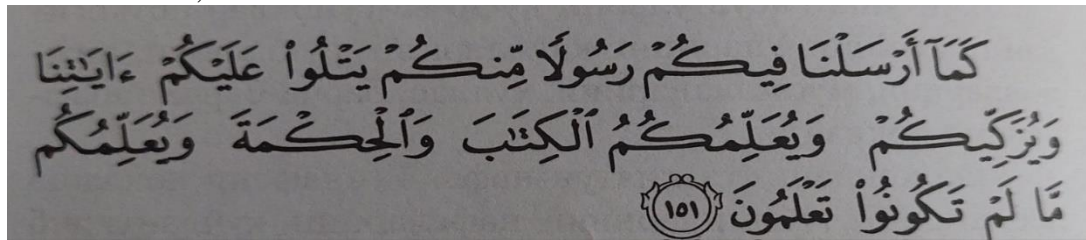 كَمَآ أَرْسَلْنَا فِيكُمْ رَسُولًا مِّنكُمْ يَتْلُوا۟ عَلَيْكُمْ ءَايَـٰتِنَا
وَيُزَكِّيكُمْ وَيُعَلِّمُكُمُ ٱلْكِتَـٰبَ وَٱلْحِكْمَةَ وَيُعَلِّمُكُم
مَّا لَمْ تَكُونُوا۟ تَعْلَمُونَ ١٥١